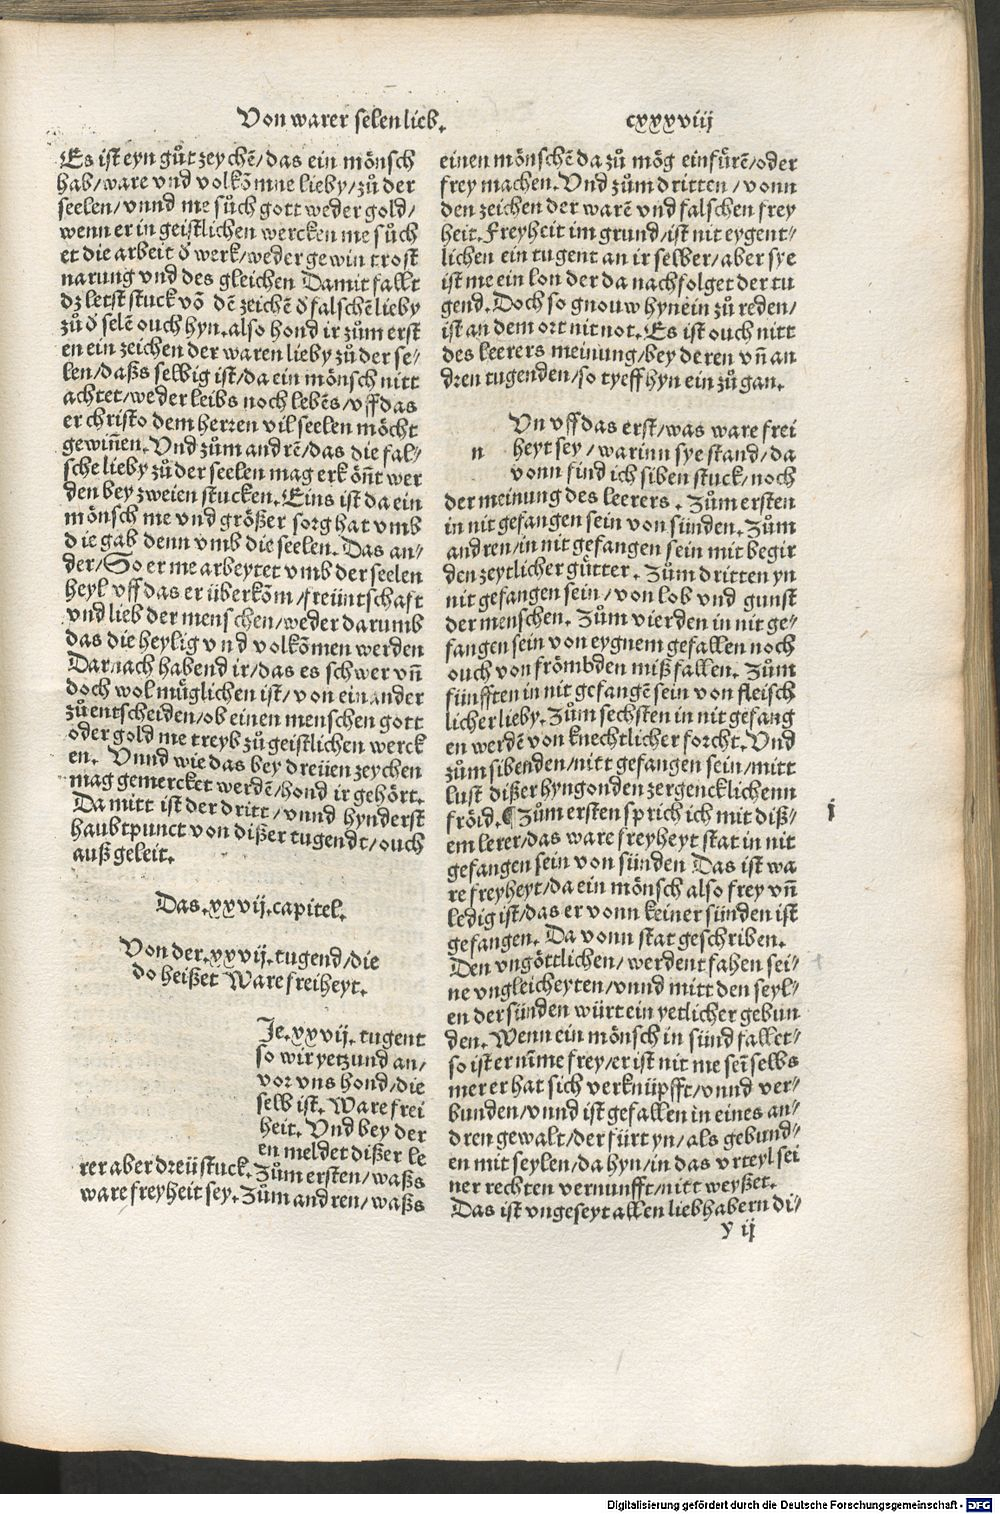 Von warer selen lieb.
cxxxviij
Es ist eyn gůt zeychē/das ein mönsch
hab/ware vnd volkōmne lieby/zů der
seelen/vnnd me sůch gott weder gold/
wenn er in geistlichen wercken me sůch
et die arbeit ð werk/weder gewin trost
narung vnd des gleichen Damit fallt
dz letst stuck vō dē zeichē ð falschē lieby
zů ð selē ouch hyn. also hond ir zům erst
en ein zeichen der waren lieby zů der se⸗
len/daßs selbig ist/da ein mönsch nitt
achtet/weder leibs noch lebēs/vff das
er christo dem herren vil seelen möcht
gewiñen. Vnd zům andrē/das die fal⸗
sche lieby zů der seelen mag erkönt wer
den bey zweien stucken. Eins ist da ein
mönsch me vnd größer sorg hat vmb
die gab denn vmb die seelen. Das an⸗
der/So er me arbeytet vmb der seelen
heyl vff das er überkōm/freüntschaft
vnd lieb der menschen/weder darumb
das die heylig vnd volkōmen werden
Darnach habend ir/das es schwer vñ
doch wol müglichen ist/von einander
zů entscheiden/ob einen menschen gott
oder gold me treyb zů geistlichen werck
en. Vnnd wie das bey dreüen zeychen
mag gemercket werdē/hond ir gehört.
Da mitt ist der dritt/vnnd hynderst
haubtpunct von dißer tugendt/ouch
auß geleit.
Das .xxvij. capitel.
Von der .xxvij. tugend/die
do heißet Ware freiheyt.
Je .xxvij. tugent
so wir yetzund an/
vor vns hond/die
selb ist. Ware frei
heit. Vnd bey der
en meldet dißer le
rer aber dreü stuck. Zům ersten/waßs
ware freyheit sey. Zům andren/waßs
einen mönschē da zů mög einfůrē/oder
frey machen. Vnd zům dritten/vonn
den zeichen der warē vnd falschen frey
heit. Freyheit im grund/ist nit eygent⸗
lichen ein tugent an ir selber/aber sye
ist me ein lon der da nachfolget der tu
gend. Doch so gnouw hynein zů reden/
ist an dem ort nit not. Es ist ouch nitt
des leerers meinung/bey deren vñ an
dren tugenden/so tyeff hyn ein zů gan.
Vn vff das erst/was ware frei
n heyt sey/warinn sye stand/da
vonn find ich siben stuck/noch
der meinung des leerers. Zům ersten
in nit gefangen sein von sünden. Zům
andren/in nit gefangen sein mit begir
den zeytlicher gůtter. Zům dritten yn
nit gefangen sein/von lob vnd gunst
der menschen. Zům vierden in nit ge⸗
fangen sein von eygnem gefallen noch
ouch von frömbden mißfallen. Zům
fünfften in nit gefangē sein von fleisch
licher lieby. Zům sechsten in nit gefang
en werdē von knechtlicher forcht. Vnd
zům sibenden/nitt gefangen sein/mitt
lust dißer hyngonden zergencklichenn
fröid. ¶ Zům ersten sprich ich mit diß⸗
i
em lerer/das ware freyheyt stat in nit
gefangen sein von sünden Das ist wa
re freyheyt/da ein mönsch also frey vñ
ledig ist/das er vonn keiner sünden ist
gefangen. Da vonn stat geschriben.
Den vngöttlichen/werdent fahen sei⸗
ne vngleicheyten/vnnd mitt den seyl⸗
en der sünden würt ein yetlicher gebun
den. Wenn ein mönsch in sünd fallet⸗
so ist er nīme frey/er ist nit me seī selbs
mer er hat sich verknüpfft/vnnd ver⸗
bunden/vnnd ist gefallen in eines an⸗
dren gewalt/der fürt yn/als gebund⸗
en mit seylen/da hyn/in das vrteyl sei
ner rechten vernunfft/nitt weyßet.
Das ist vngeseyt allen liebhabern di⸗
y ij
Digitalisierung gefördert durch die Deutsche Forschungsgemeinschaft - DFG